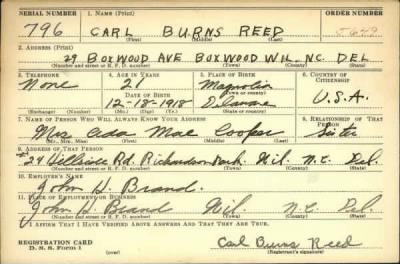 SERIAL NUMBER 1. NAME (Print) ORDER NUMBER
796 CARL BURNS REED
(First) (Middle) (Last)
2. ADDRESS (Print)
29 BOXWOOD AVE BOXWOOD WIL, NC. DEL
(Number and street or R. F. D. number) (Town) (County) (State)
3. TELEPHONE 4. AGE IN YEARS 5. PLACE OF BIRTH 6. COUNTRY OF CITIZENSHIP
None 21 Magnolia
DATE OF BIRTH (Town or county)
12-18-1918 Delaware U.S.A.
(Exchange) (Number) (Mo.) (Day) (Yr.) (State or country)
7. NAME OF PERSON WHO WILL ALWAYS KNOW YOUR ADDRESS 8. RELATIONSHIP OF THAT PERSON
Mrs Ada Mae Cooper Sister
(Mr., Mrs., Miss) (First) (Middle) (Last)
9. ADDRESS OF THAT PERSON
#24 Hillside Rd. Richardson Park. Wil. N.C. Del.
(Number and street or R. F. D. number) (Town) (County) (State)
10. EMPLOYER'S NAME
John H. Brand.
11. PLACE OF EMPLOYMENT OR BUSINESS
John H. Brand Wil. N.C. Del.
(Number and street or R. F. D. number) (Town) (County) (State)
I AFFIRM THAT I HAVE VERIFIED ABOVE ANSWERS AND THAT THEY ARE TRUE.
REGISTRATION CARD
D. S. S. Form 1 Carl Burns Reed
(Registrant's signature)